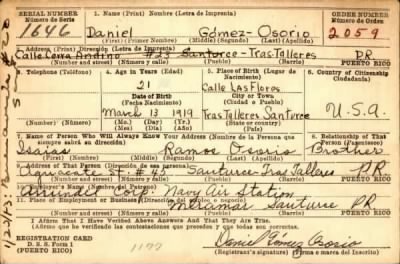 SERIAL NUMBER
Número de Serie
1646
1. Name (Print) Nombre (Letra de Imprenta)
Daniel Gómez-Osorio
(First) (Primer Nombre) (Middle) (Segundo) (Last) (Apellido)
ORDER NUMBER
Número de Orden
2059
2. Address (Print) Dirección (Letra de Imprenta)
Calle #23 Santurce-Tras Talleres PR
(Number and street) (Número y calle)
PUERTO RICO
3. Telephone (Teléfono)
4. Age in Years (Edad)
21
Date of Birth
(Fecha Nacimiento)
March 13 1919
5. Place of Birth (Lugar de Nacimiento)
Calle Las Flores
City or Town
(Ciudad o Pueblo)
Tras Talleres Santurce
State or country
6. Country of Citizenship
(Ciudadanía)
U.S.A.
7. Name of Person Who Will Always Know Your Address (Nombre de la Persona que
siempre sabrá su dirección)
Isaías Ramos Osorio
(Middle) (Segundo) (Last) (Apellido)
8. Relationship of That
Person (Parentesco)
Brother
9. Address of That Person (Dirección de esa persona)
Aguacate st. #45 Santurce-Tras Talleres PR
(Number and street) (Número y calle)
PUERTO RICO
10. Employer's Name (Nombre del Patrono)
Corp. Navy Air Station
11. Place of Employment or Business
Miramar Santurce PR
(Number and street) (Número y calle)
PUERTO RICO
I Affirm That I Have Verified Above Answers And That They Are True.
(Afirmo que he verificado las contestaciones que preceden y que todas son correctas.)
REGISTRATION CARD
D. S. S. Form 1
(Puerto Rico)
1177
Daniel Gómez Osorio
Registrant's signature